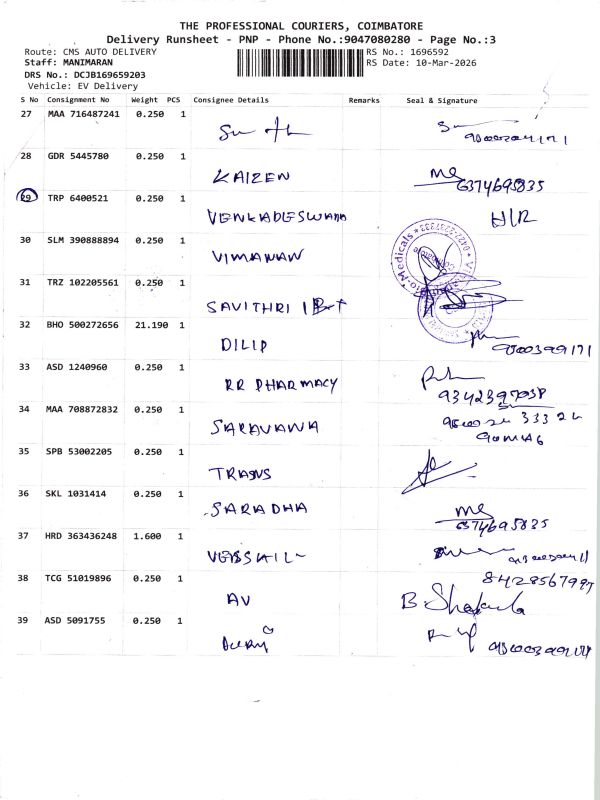 THE PROFESSIONAL COURIERS, COIMBATORE
Delivery Runsheet - PNP - Phone No.:9047080280 - Page No.:3
Route: CMS AUTO DELIVERY
RS No.: 1696592
Staff: MANIMARAN
RS Date: 10-Mar-2026
DRS No.: DCJB169659203
Vehicle: EV Delivery
S No Consignment No Weight PCS Consignee Details Remarks Seal & Signature
27 MAA 716487241 0.250 1
28 GDR 5445780 0.250 1
KAIZEN 6374695835
29 TRP 6400521 0.250 1
30 SLM 390888894 0.250 1
VIMANAN
31 TRZ 102205561 0.250 1
SAVITHRI
32 BHO 500272656 21.190 1
DILIP
33 ASD 1240960 0.250 1
RR PHARMACY
34 MAA 708872832 0.250 1
SARAVANA
35 SPB 53002205 0.250 1
TRANS
36 SKL 1031414 0.250 1
SARADHA 6374695835
37 HRD 363436248 1.600 1
38 TCG 51019896 0.250 1
AV
39 ASD 5091755 0.250 1